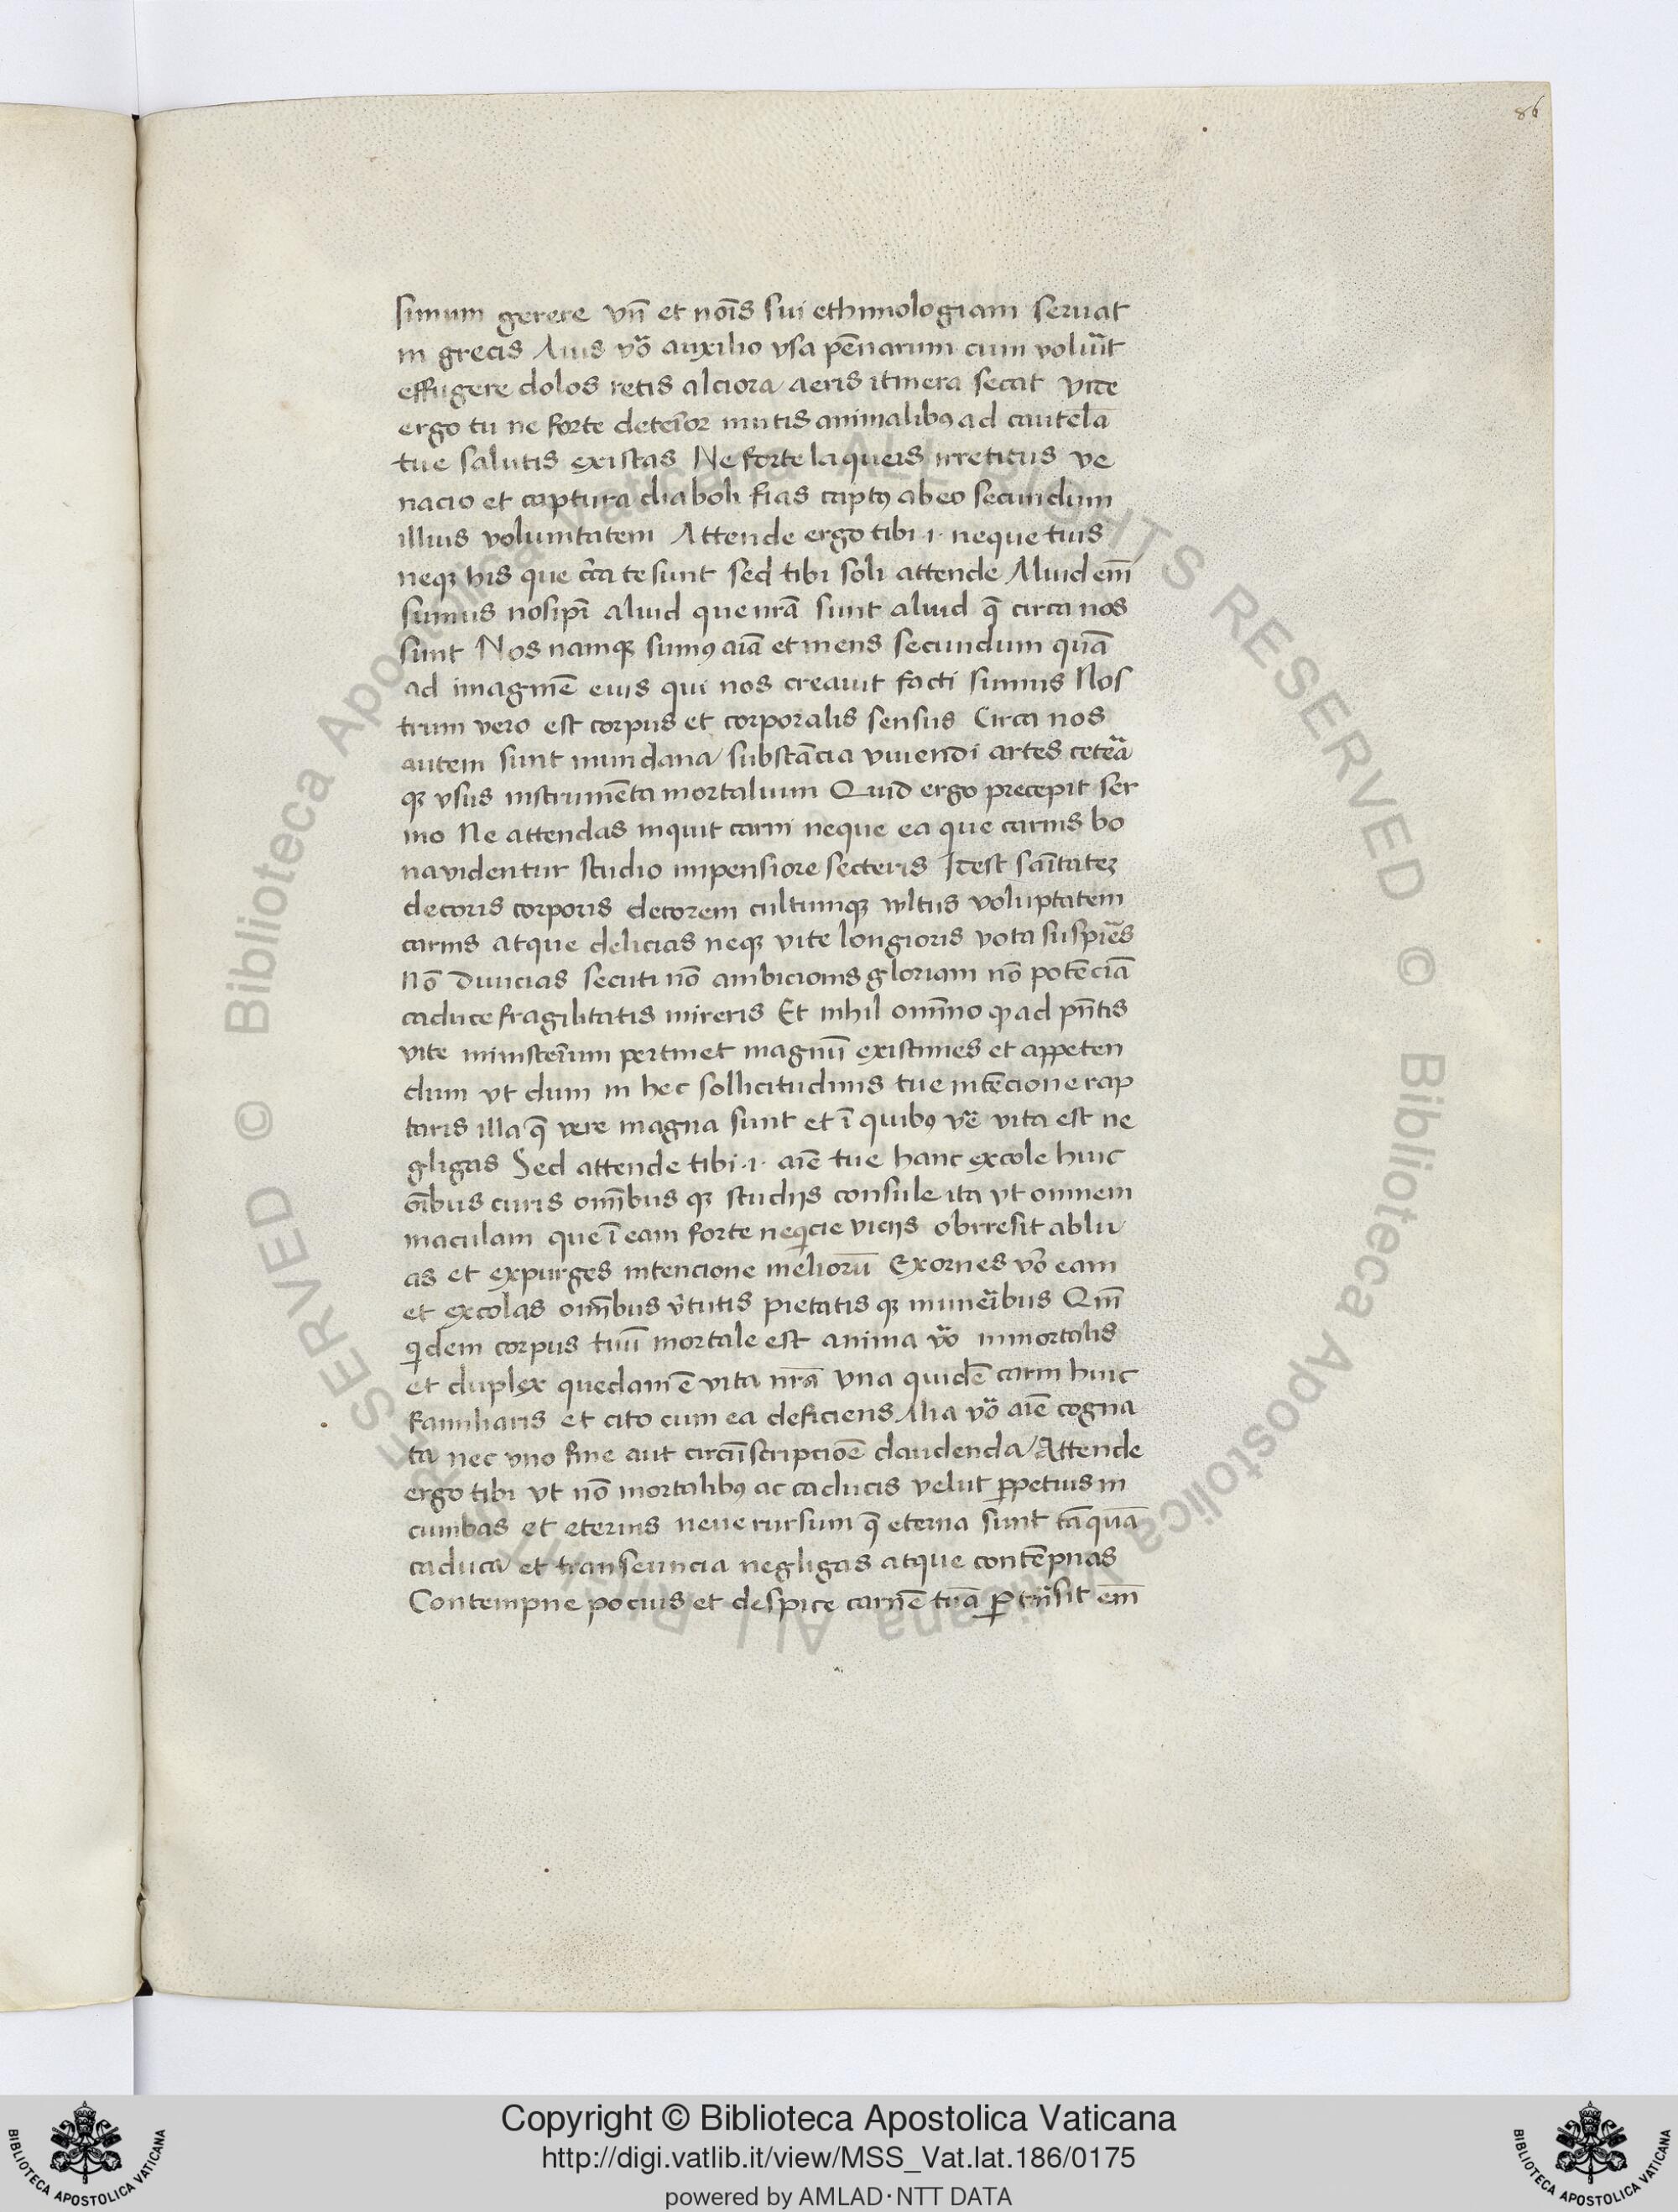 86
simum gerere vn̄ et nōis sui ethimologiam seruat
in grecis Auis vͦo auxilio vsa pēnarum cum voluͣit
effugere dolos retis alciora aeris itinera secat vite
ergo tu ne forte deterͥor mutis animalibꝰ ad cautelā
tue salutis existas Ne forte laqueis irretitus ve
nacio et captura diaboli fias captꝰ ab eo secundum
illius voluntatem Attende ergo tibi .i. neque tuis
neqꝫ his que cͥca te sunt sed tibi soli attende Aliud em̄
sumus nosipī aliud que nr̄a sunt aliud q̄ circa nos
sunt Nos namqꝫ sumꝰ aīa et mens secundum quā
ad imaginē eius qui nos creauit facti sumus Nos
trum vero est corpus et corporalis sensus Circa nos
autem sunt mundana substācia viuendi artes ceteͣa
qꝫ vsus instrumēta mortalium Quid ergo precepit ser
mo Ne attendas inquit carni neque ea que carnis bo
na videntur studio impensiore secteris Idest sanitateꝫ
decoris corporis decorem cultumqꝫ wltus voluptatem
carnis atque delicias neqꝫ vite longioris vota suspiͣes
Nō diuicias secuti nō ambicionis gloriam nō potēciā
caduce fragilitatis mireris Et nihil omīno qͥ ad pn̄tis
vite ministerͥum pertinet magnū existimes et appeten
dum vt dum in hec sollicitudinis tue intēcione rap
taris illa q̄ vere magna sunt et ī quibꝰ vē vita est ne
gligas Sed attende tibi .i. aīe tue hanc excole huic
oībus curis omībus qꝫ studijs consule ita vt omnem
maculam que ī eam forte neqͥcie vicijs obrresit ablu
as et expurges intencione meliorū Exornes vͦo eam
et excolas omībus vͥtutis pietatis qꝫ muneͥibus Qm̄
qͥdem corpus tuū mortale est anima vͦo inmortalis
et duplex quedam ē vita nr̄a vna quidē carni huic
familiaris et cito cum ea deficiens Alia vͦo aīe cogna
ta nec vno fine aut circūscripcioē claudenda Attende
ergo tibi vt nō mortalibꝰ ac caducis velut ꝑpetuis in
cumbas et eternis neue rursum q̄ eterna sunt tāquā
caduca et transeuncia negligas atque contēpnas
Contempne pocius et despice carnē tuā ꝑtnͣsit em̄
Copyright © Biblioteca Apostolica Vaticana
http://digi.vatlib.it/view/MSS_Vat.lat.186/0175
powered by AMLAD·NTT DATA
BIBLIOTECA APOSTOLICA VATICANA
BIBLIOTECA APOSTOLICA VATICANA
© Biblioteca Apostolica Vaticana ALL RIGHTS RESERVED © Biblioteca Apostolica Vaticana ALL RIGHTS RESERVED